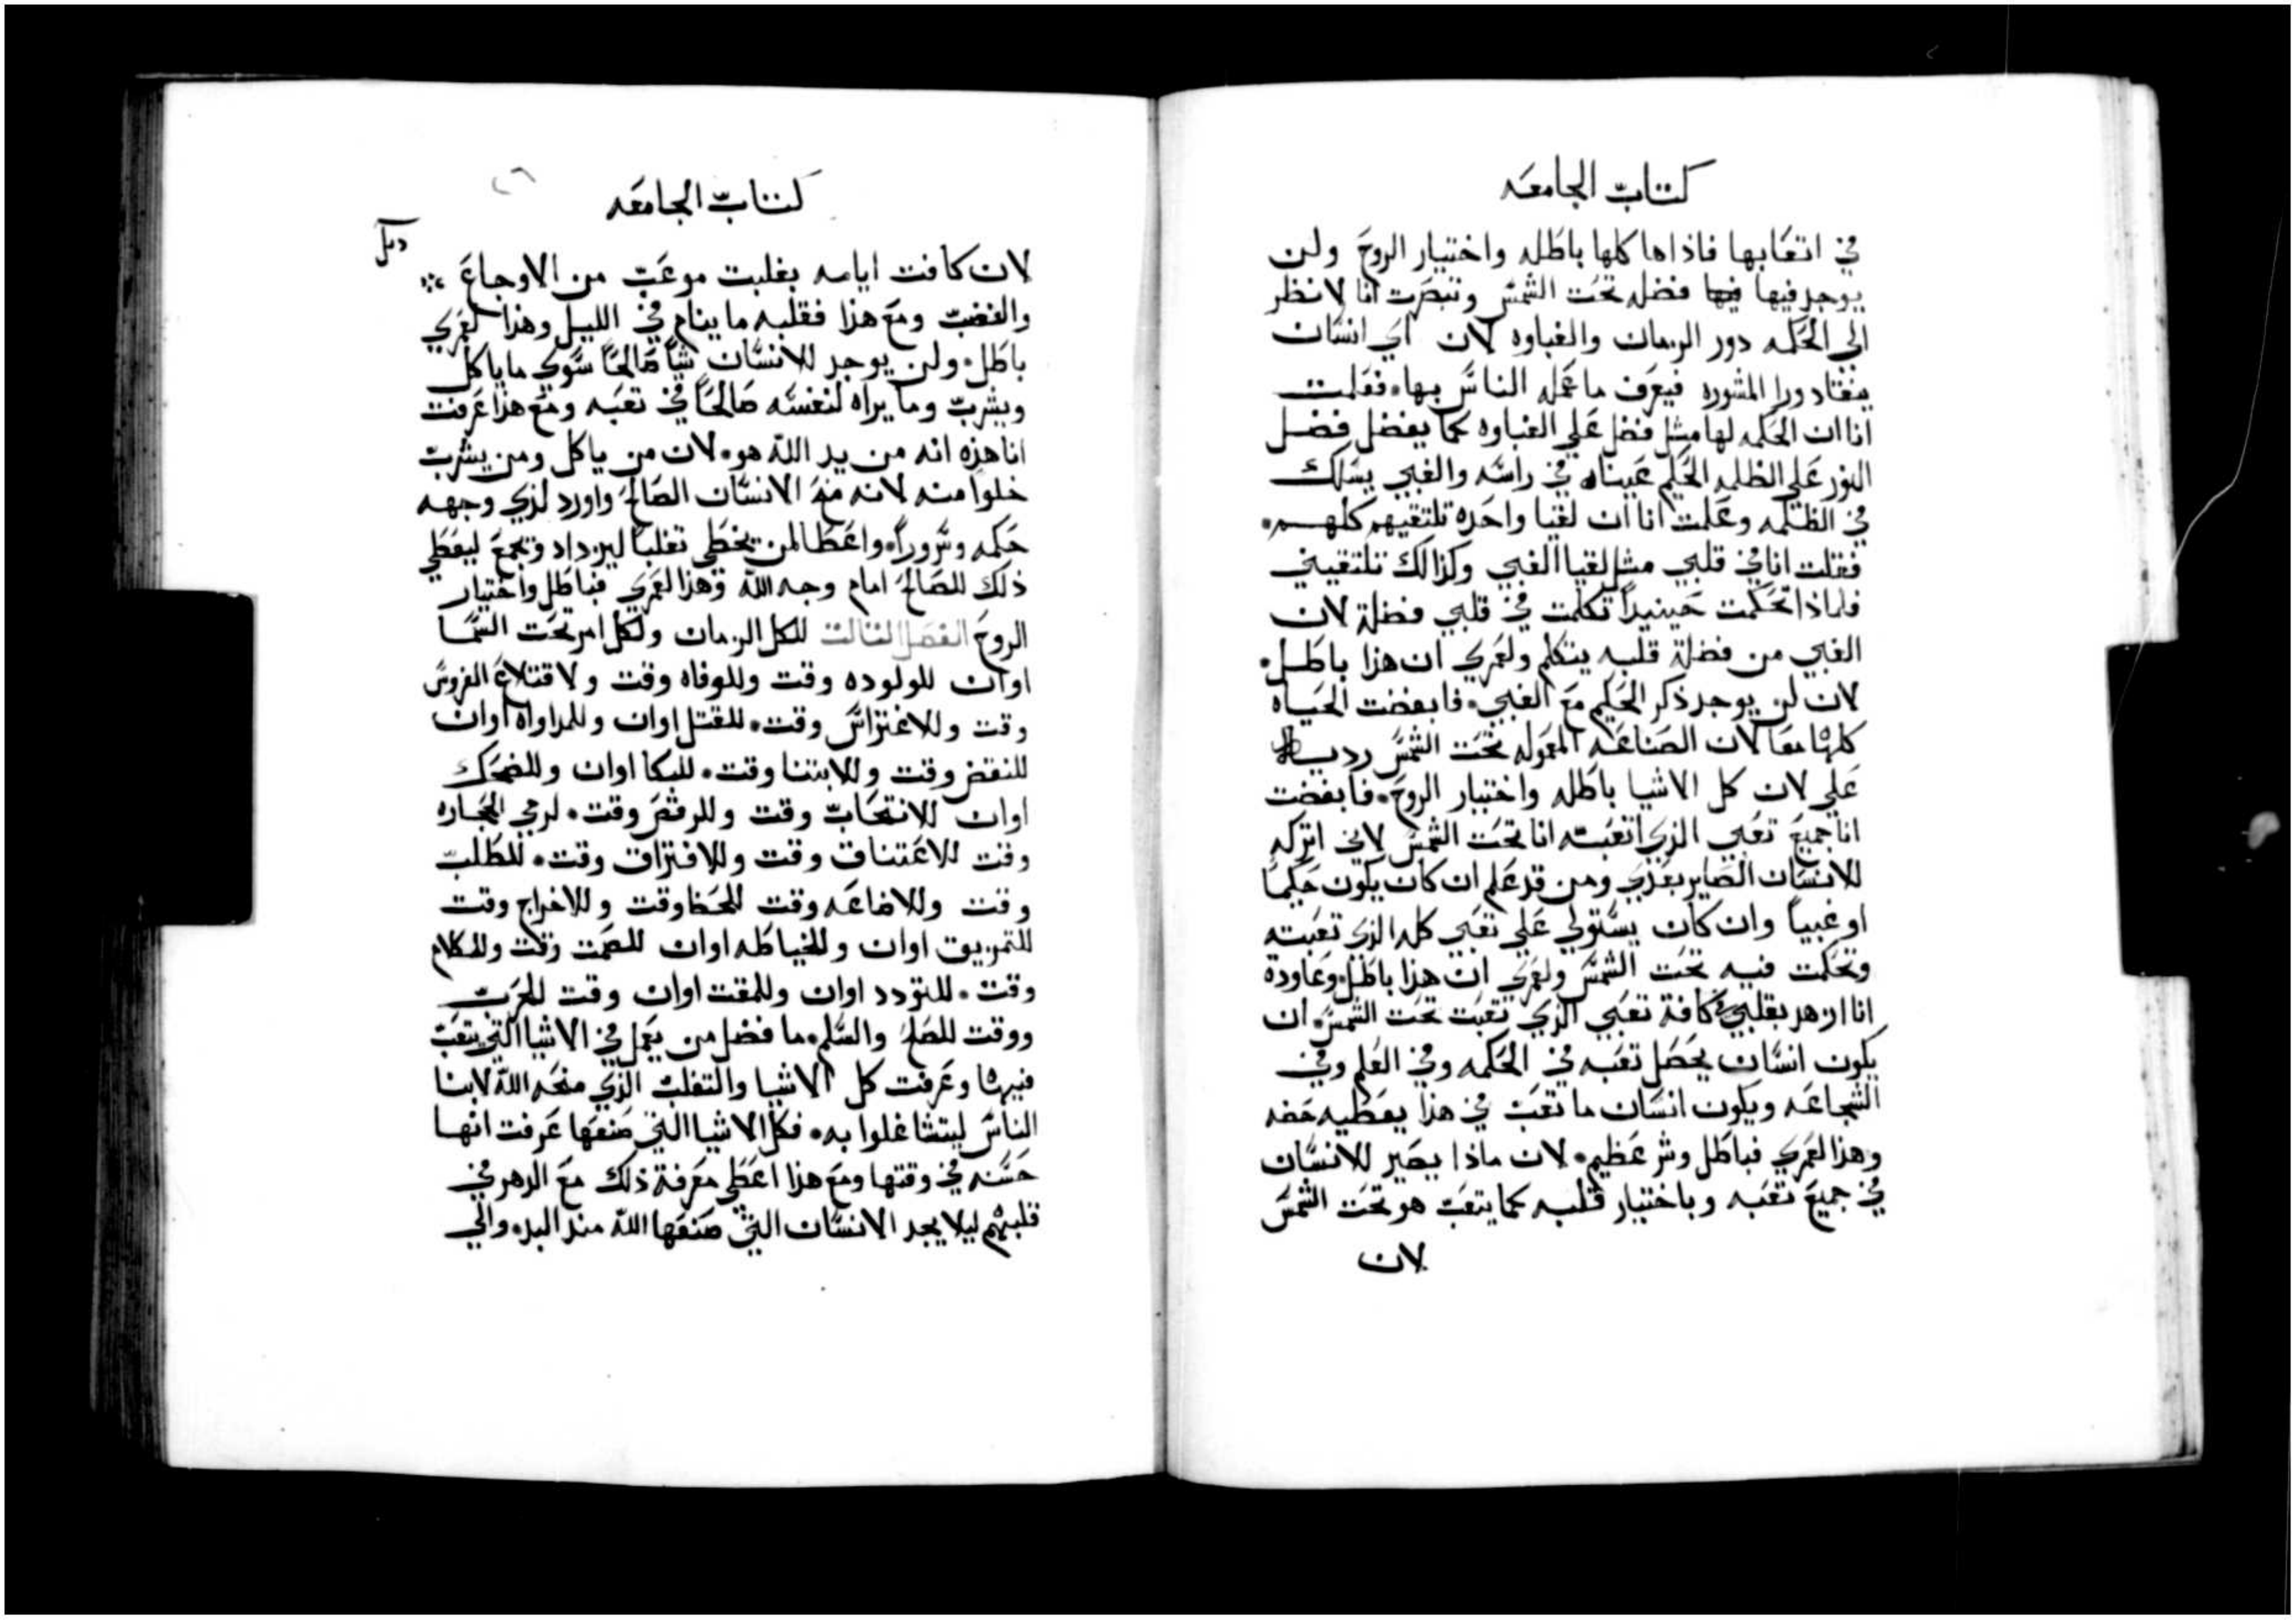 كتاب الجامعه
في اتعابها فاذاها كلها باطله واختيار الروح ولن
يوجد فيها فيها فضله تحت الشمس وتبصرت انا لانظر
الي الحكمه دور الزمان والغباوه لان اي انسان
ينقاد ورا المشوره فيعرف ما عمله الناس بها. فعلمت
انا ان الحكمه لها مثل فضل علي الغباوه كما يفضل فضل
النور علي الظلمه الحكيم عيناه في راسه والغبي يسلك
في الظلمه وعلمت انا ان لقيا واحده تلتقيهم كلهم.
فقلت انا في قلبي مثل لقيا الغبي وكذالك تلتقيني
فلماذا تحكمت حينيداً تكلمت في قلبي فضلة لان
الغبي من فضلة قلبه يتكلم ولعمري ان هذا باطل.
لان لن يوجد ذكر الحكيم مع الغبي. فابغضت الحياه
كلها معا لان الصناعه المعموله تحت الشمس رديه
علي لان كل الاشيا باطله واختيار الروح. فابغضت
انا جميع تعبي الذي اتعبته انا تحت الشمس لاني اتركه
للانسان الصاير بعدي ومن قد علم ان كان يكون حكيماً
او غبياً وان كان يستولي علي تعبي كله الذي تعبته
وتحكمت فيه تحت الشمس ولعمري ان هذا باطل. وعاودة
انا ازهد بقلبي في كافة تعبي الذي تعبت تحت الشمس. ان
يكون انسان يحصل تعبه في الحكمه وفي العلم وفي
الشجاعه ويكون انسان ما تعب في هذا يعطيه حضه
وهذا لعمري فباطل وشر عظيم. لان ماذا يصير للانسان
في جميع تعبه وباختيار قلبه كما يتعب هو تحت الشمس
لان
كتاب الجامعه
٢٦
لان كافت ايامه بغلبت موعب من الاوجاع
والغضب ومع هذا فقلبه ما ينام في الليل وهذا لعمري
باطل. ولن يوجد للانسان شياً صالحاً سوي ما ياكل
ويشرب وما يراه لنفسه صالحاً في تعبه ومع هذا عرفت
انا هذه انه من يد الله هو. لان من ياكل ومن يشرب
خلوا منه لانه منح الانسان الصالح واورد لذي وجهه
حكمه وسروراً. واعطا لمن يخطي تغلباً ليزداد ويجمع ليعطي
ذلك للصالح امام وجه الله وهذا لعمري فباطل واختيار
الروح الفصل الثالث للكل الزمان ولكل امر تحت السما
اوان للولوده وقت وللوفاه وقت ولاقتلاع الغروس
وقت وللاغتراس وقت. للقتل اوان وللمداواه اوان
للنقض وقت وللابتنا وقت. للبكا اوان وللضحك
اوان للانتحاب وقت وللرقص وقت. لرمي الحجاره
وقت للاعتناق وقت وللافتراق وقت. للطلب
وقت وللاضاعه وقت للحفظ وقت وللاخراج وقت
للتمزيق اوان وللخياطه اوان للصمت وقت وللكلام
وقت. للتودد اوان وللمقت اوان وقت للحرب
ووقت للصلح والسلم. ما فضل من يعمل في الاشيا التي يتعب
فيها وعرفت كل الاشيا والتغلب الذي منحه الله لابنا
الناس ليتشاغلوا به. فكل الاشيا التي صنعها عرفت انها
حسنه في وقتها ومع هذا اعطي معرفة ذلك مع الدهر في
قلبهم ليلا يجد الانسان التي صنعها الله منذ البده والي